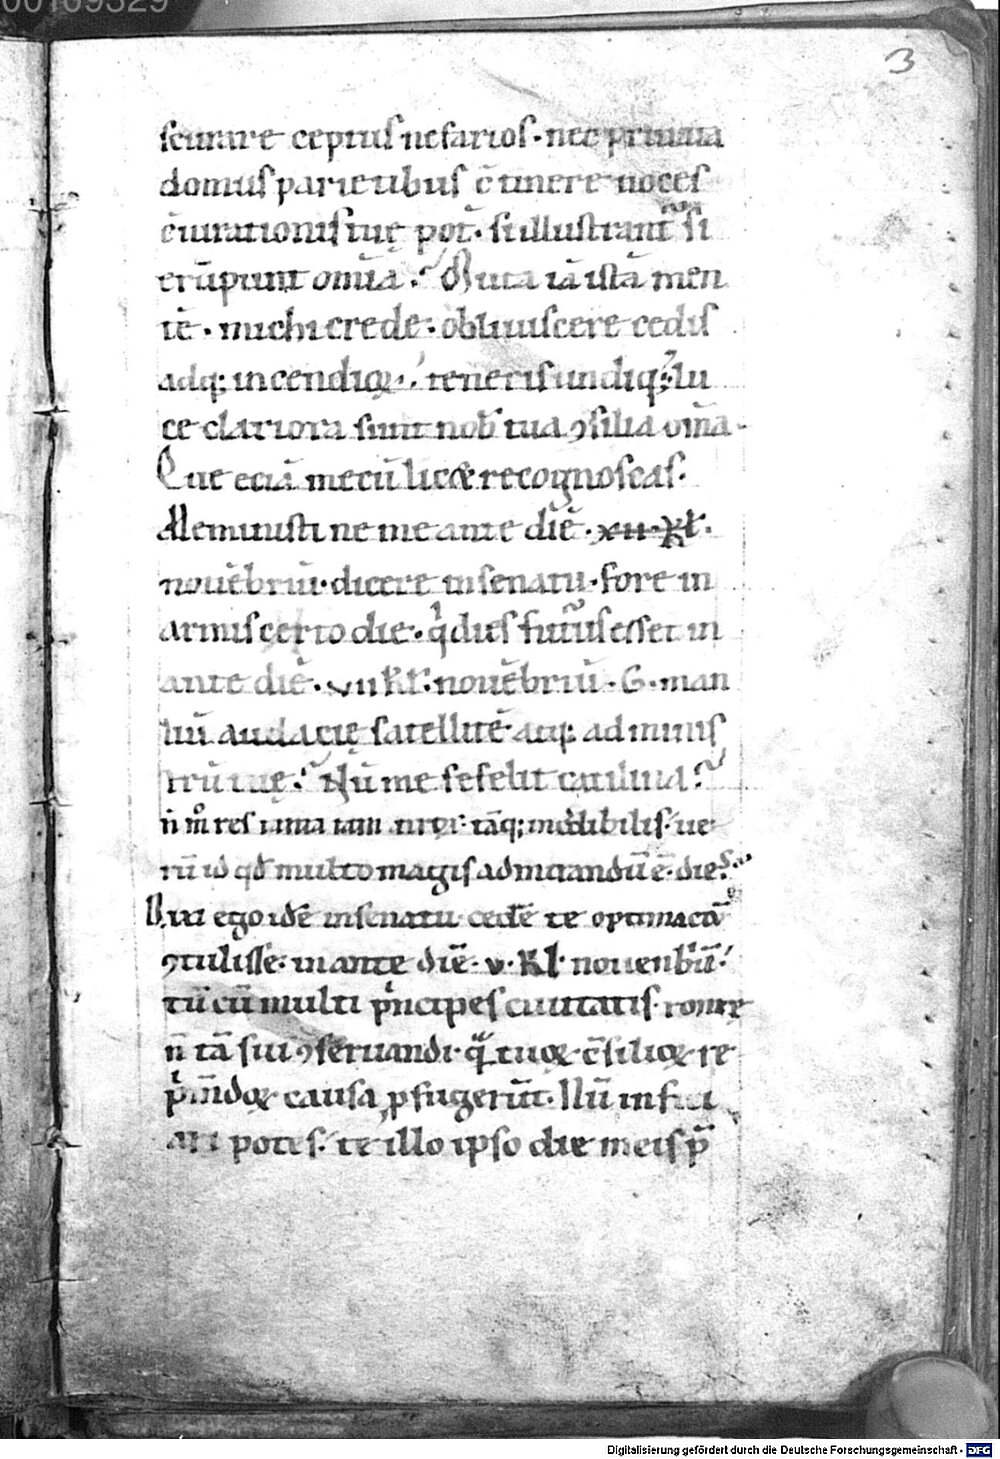 00109329
3
scurare ceptus nefarios · nec privata
domus parietibus c̄tinere uoces
c̄iurationis tuę pot̄ · si illustrant᷑ si
erūpunt om̄ia ? Muta iā istā men
tē · michi crede · obliuiscere cedis
adq; incendioꝝ · teneris undiq; lu
ce clariora sunt nob̄ tua ꝯsilia om̄a ·
Que eciā mecū lic& recognoscas ·
Meministi ne me ante diē · xii · kl̄ ·
nouēbriū · dicere in senatu · fore in
armis certo die · qͥ dies futurus esset in
ante diē · vii kl̄ · nouēbriū · G · man
liū audacię satellitē atq; adminis
trū tuę ? Nū me fefelit catilina ?
n̄ m̊ res tanta tam atrox · tāq; incredibilis · ue
rū id qd̄ multo magis admirandū ē · dies ?
Dixi ego idē in senatu cedē te optimatū
ꝯtulisse · in ante diē · v · kl̄ nouenbriū ·
tū cū multi pͥncipes ciuitatis · rome
n̄ tā sui ꝯseruandi · qͣ tuoꝝ c̄silioꝝ re
pͥm̄doꝝ causa ꝓfugerūt · Nū infici
ari potes · te illo ipso die meis p̄
Digitalisierung gefördert durch die Deutsche Forschungsgemeinschaft - DFG